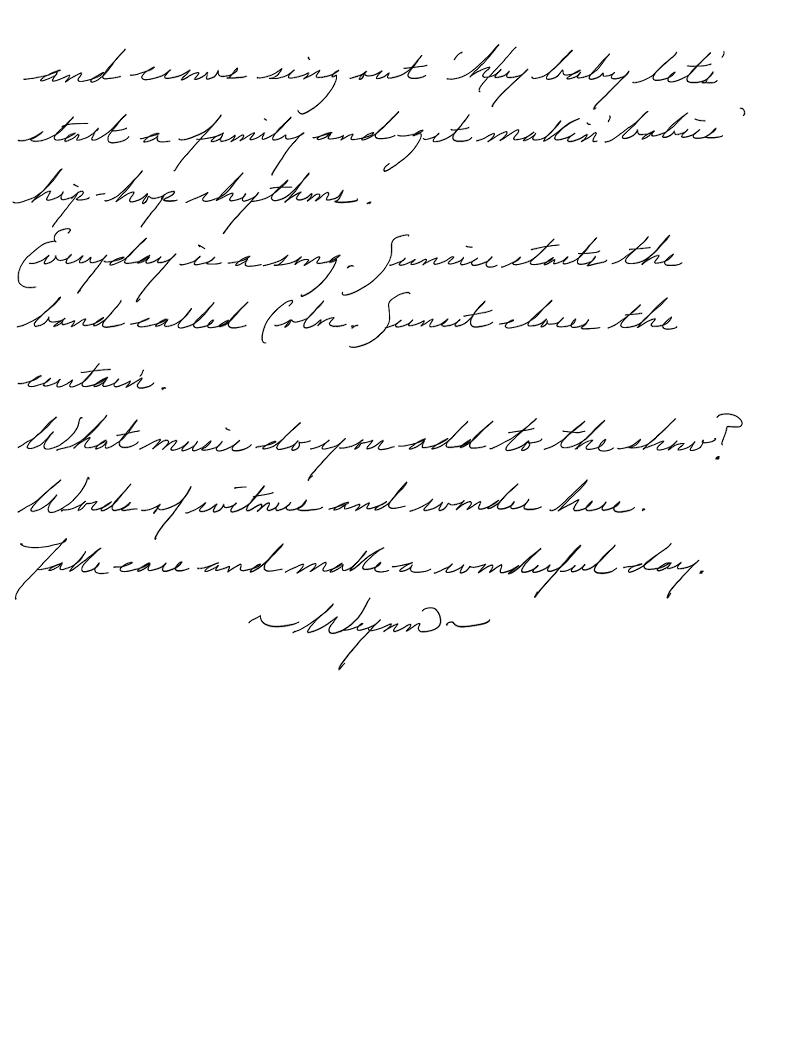 and curves sing out 'Hey baby let's
start a family and get makin' babies'
hip-hop rhythms.
Everyday is a song. Sunrise starts the
band called Color. Sunset closes the
curtain.
What music do you add to the show?
Words of witness and wonder here.
Take care and make a wonderful day.
~Wynn~